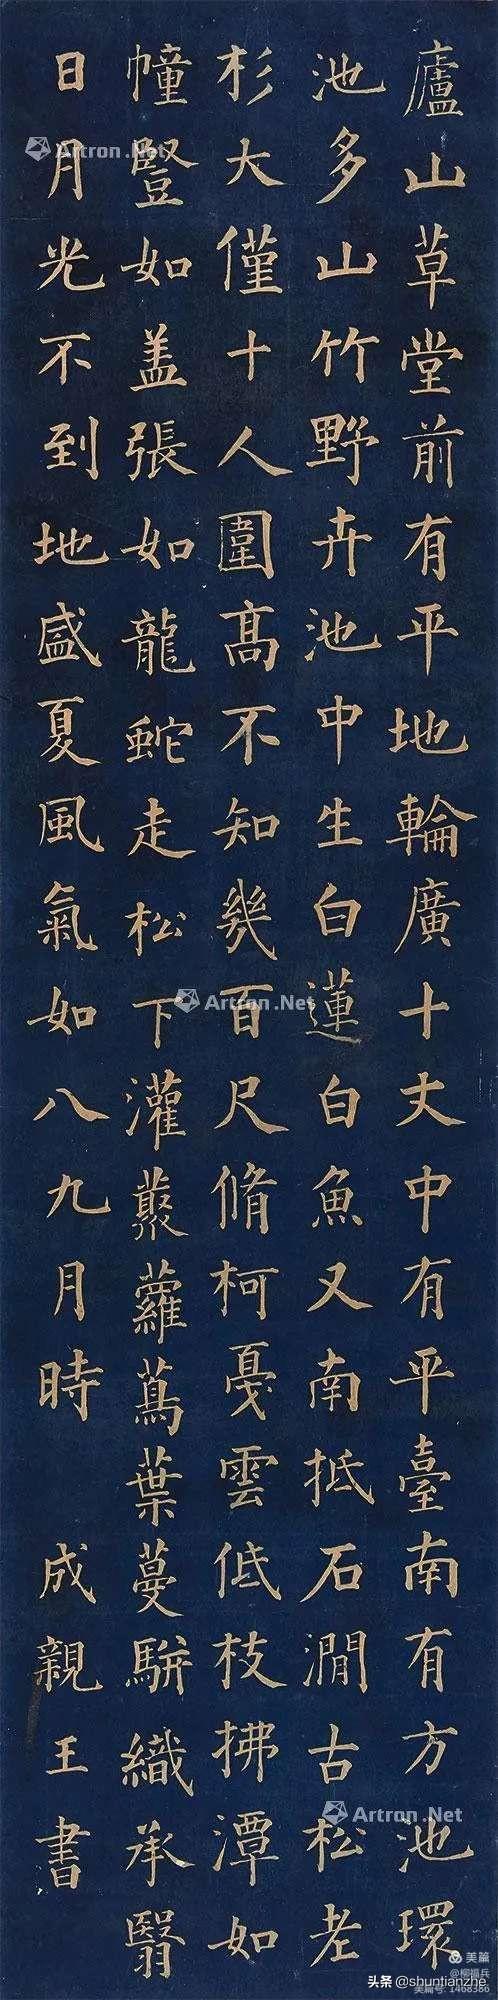 廬山草堂前有平地輪廣十丈中有平臺南有方池環
池多山竹野卉池中生白蓮白魚又南抵石澗古松老
杉大僅十人圍高不知幾百尺脩柯戛雲低枝拂潭如
幢豎如盖張如龍蛇走松下灌叢蘿蔦葉蔓駢織承翳
日月光不到地盛夏風氣如八九月時 成親王書
Artron.Net
Artron.Net
Artron.Net
美篇
@柳福兵
头条 @shuntianzhe
美篇号: 1468386